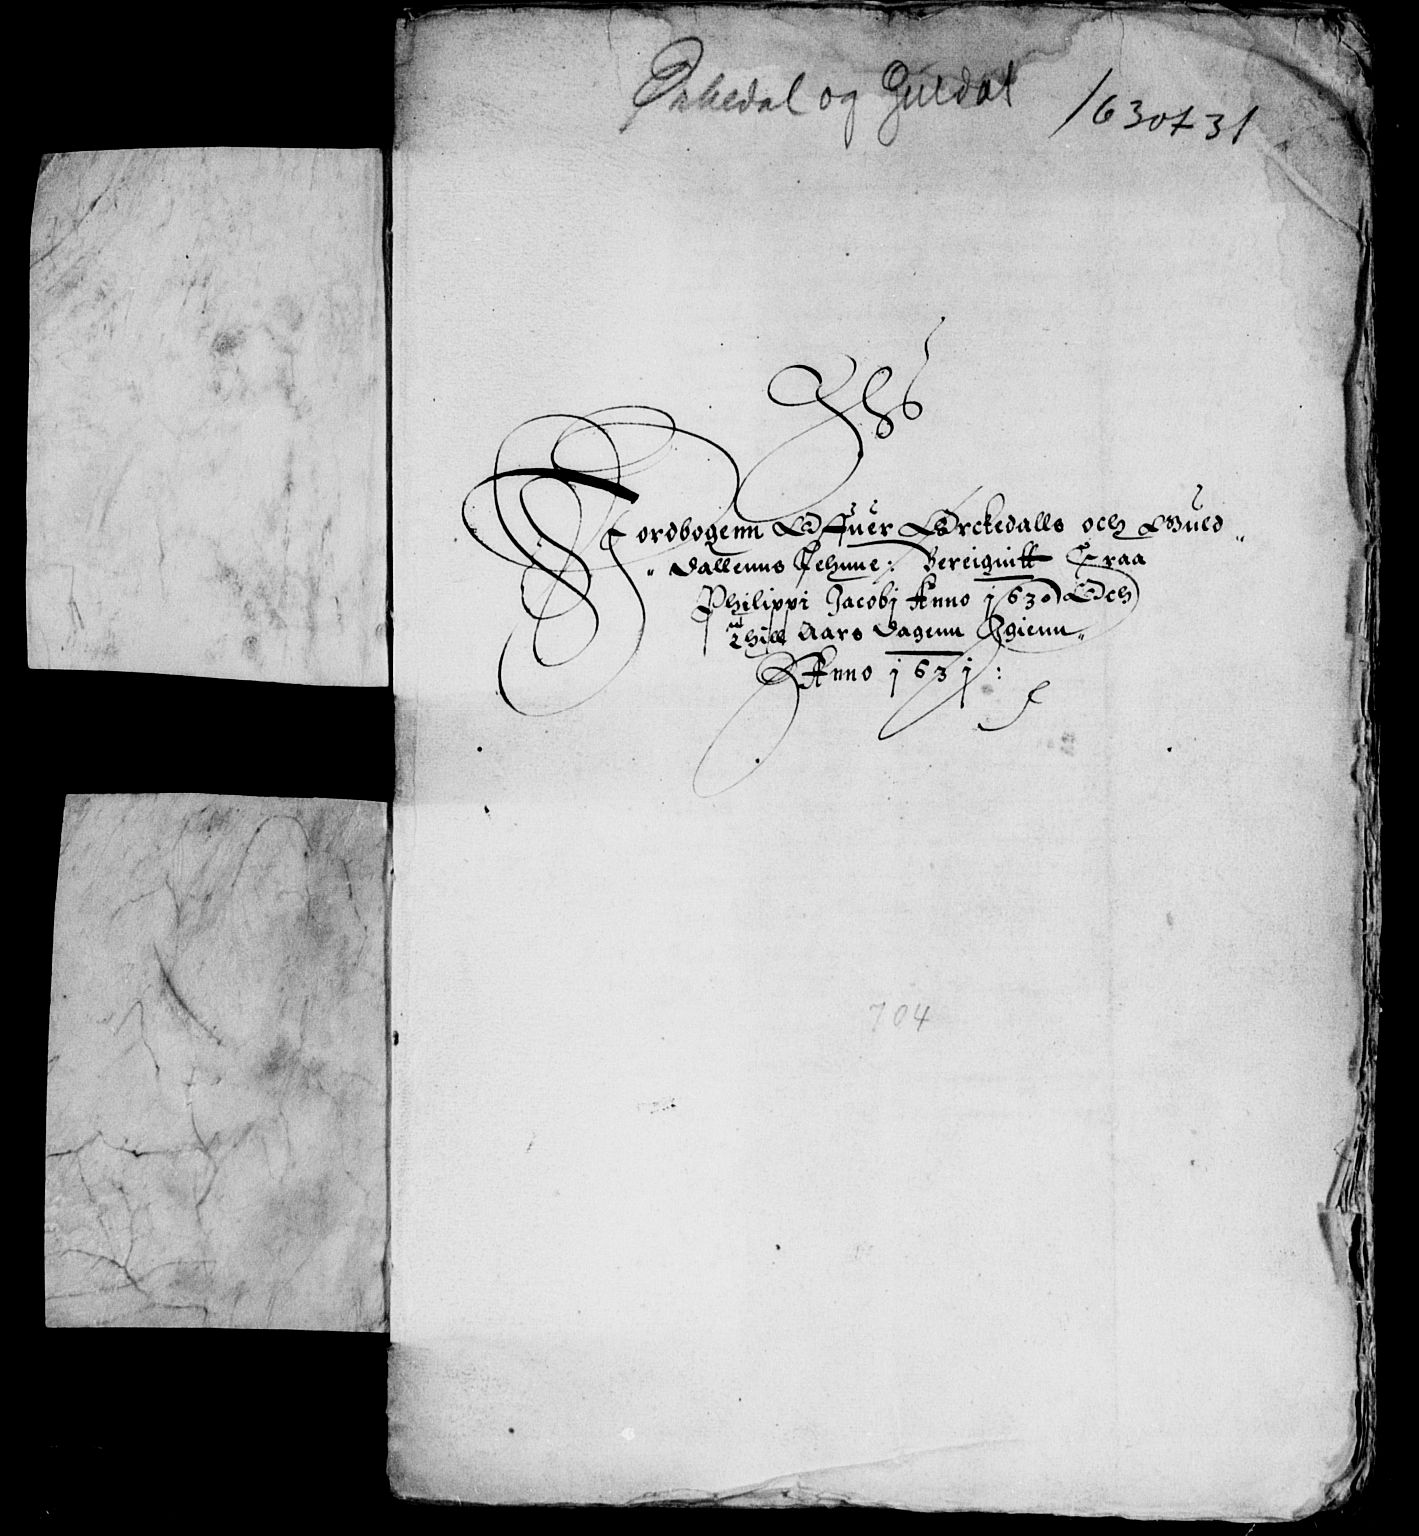 Orkedal og Guldal 1630 & 31
IHS
Jordbogenn Offuer Orckedalls och Guld„
„dallenns Lehnne: Bereignitt Fraa
Philippi Jacobj Anno 1630 Och
thill Aars dagenn Igienn„
Anno 1631:
704